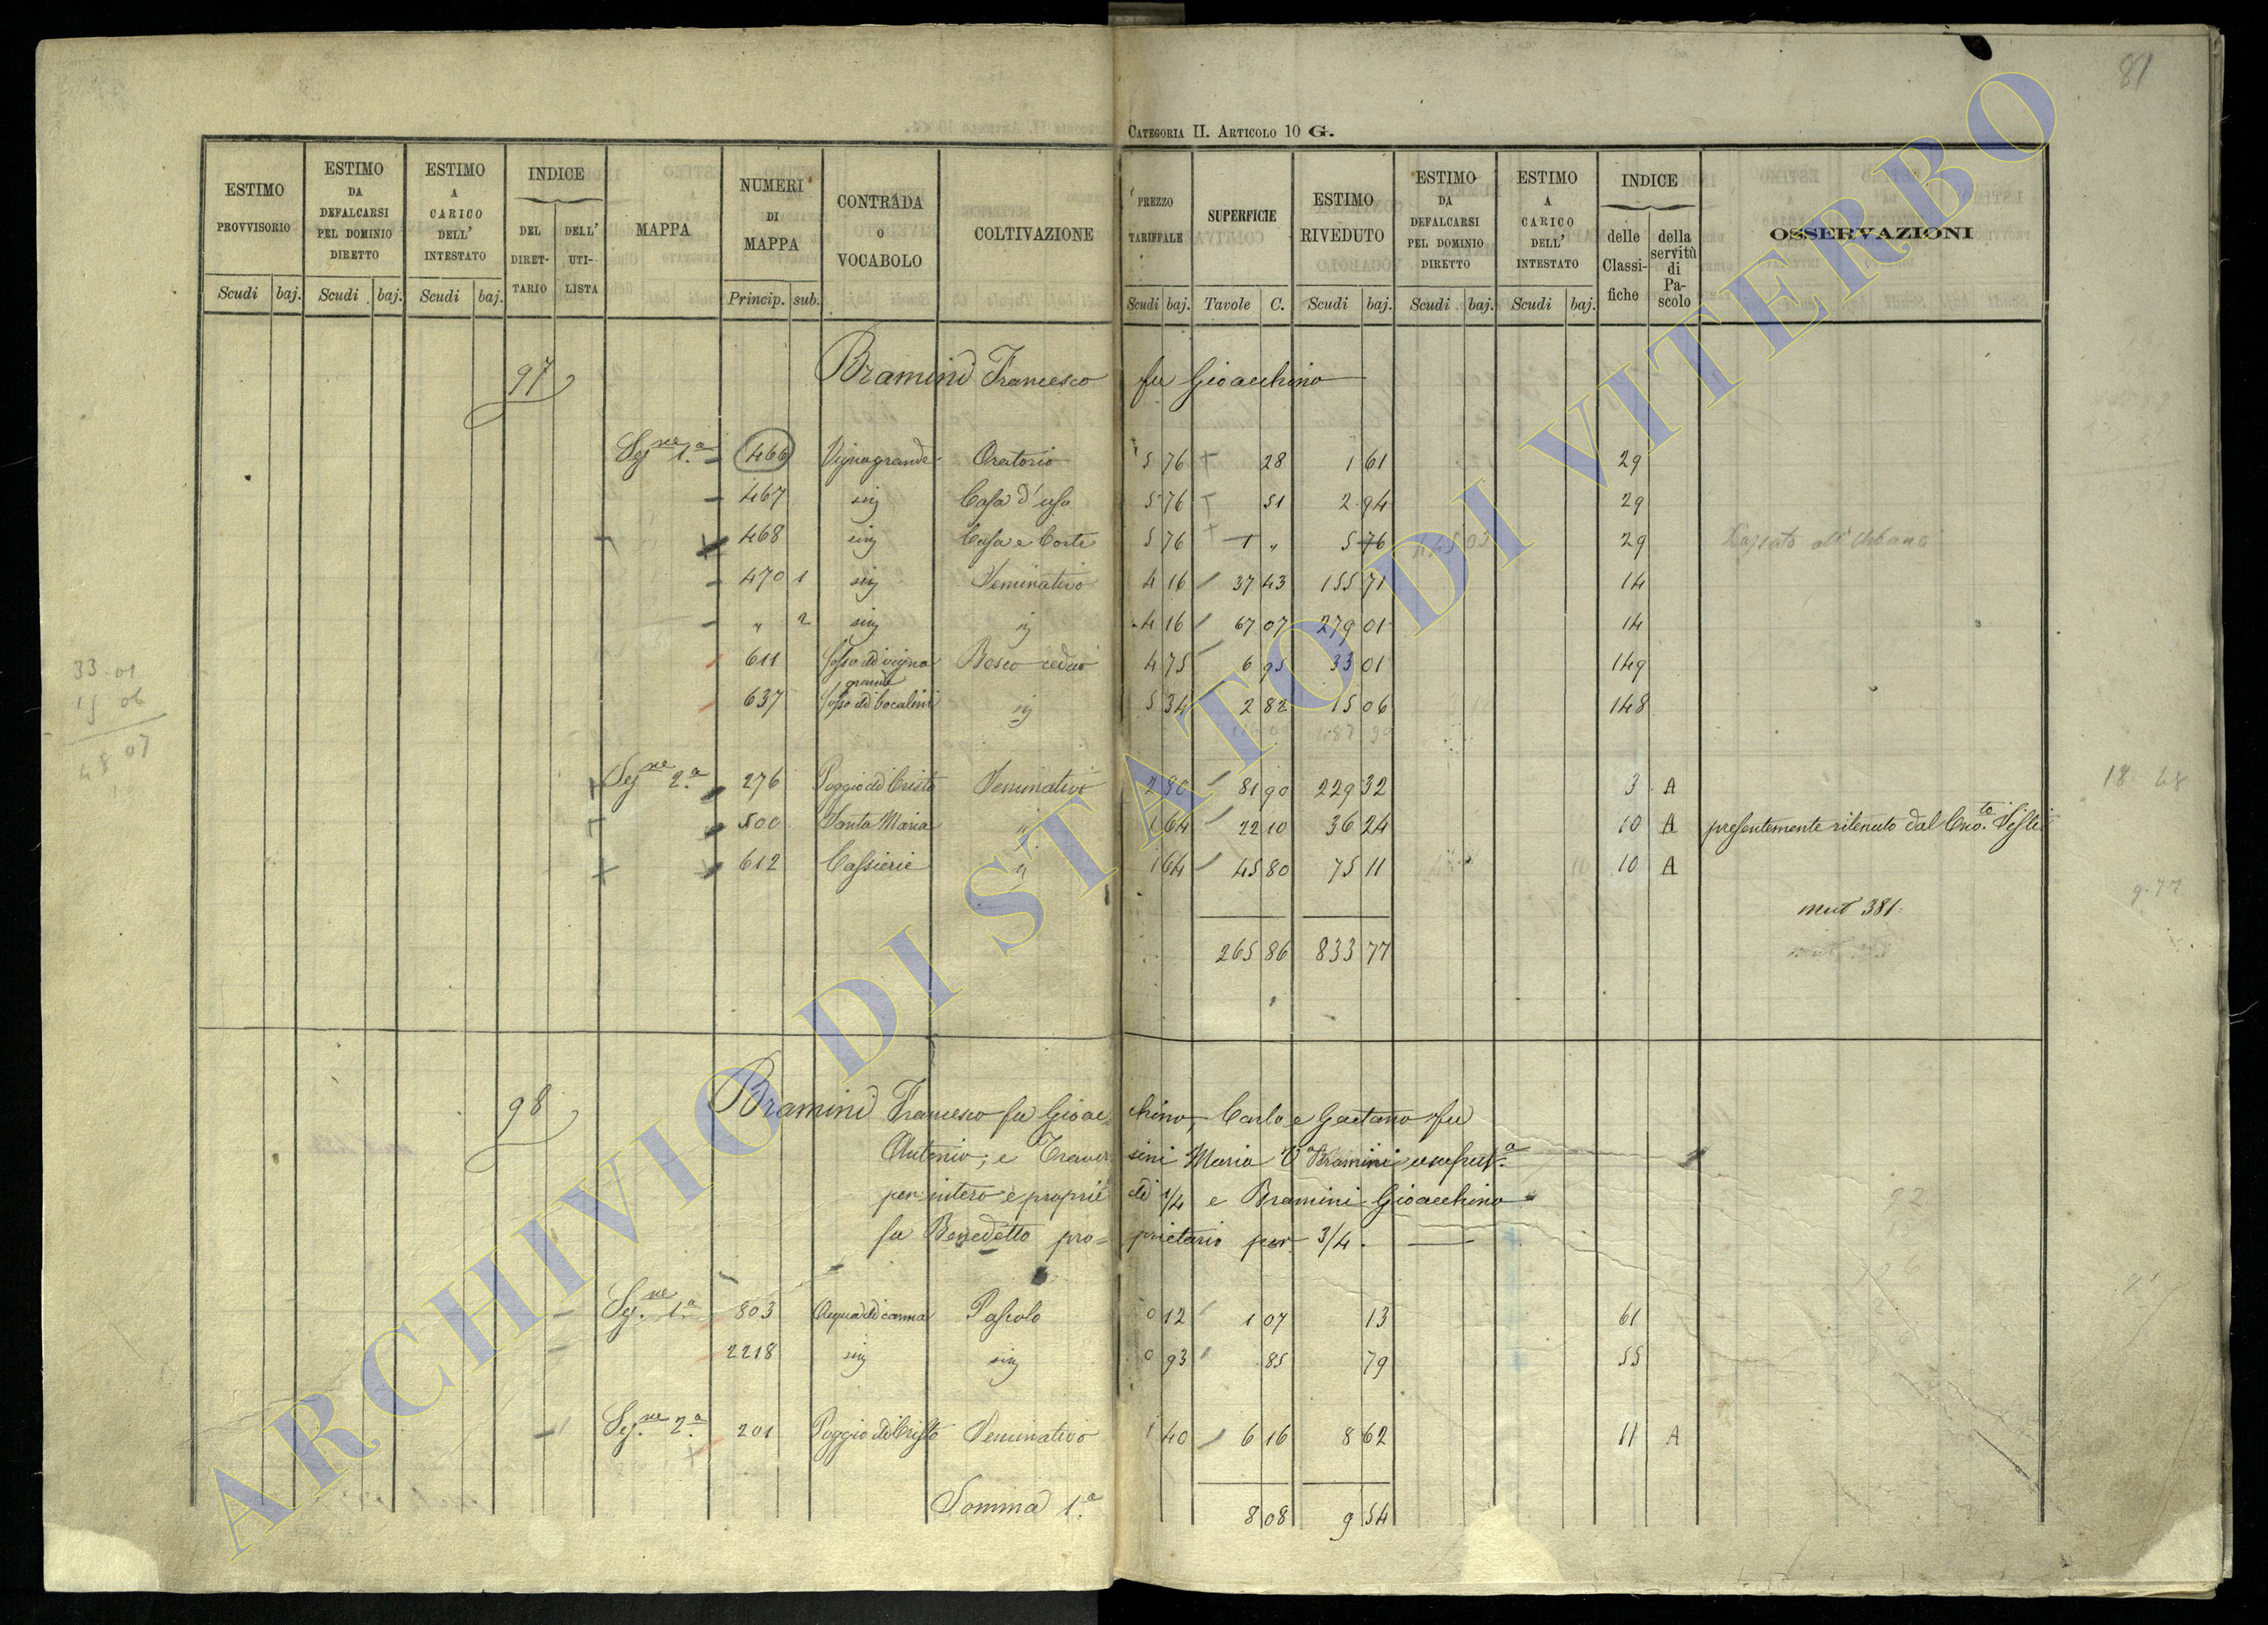 81
Categoria II. Articolo 10 G.
ESTIMO PROVVISORIO | ESTIMO DA DEFALCARSI PEL DOMINIO DIRETTO | ESTIMO A CARICO DELL' INTESTATO | INDICE DEL DIRETTARIO | DELL' UTILISTA | MAPPA | NUMERI DI MAPPA | CONTRADA O VOCABOLO | COLTIVAZIONE | PREZZO TARIFFALE | SUPERFICIE | ESTIMO RIVEDUTO | ESTIMO DA DEFALCARSI PEL DOMINIO DIRETTO | ESTIMO A CARICO DELL' INTESTATO | INDICE delle Classifiche | della servitù di Pascolo | OSSERVAZIONI
Scudi baj. | Scudi baj. | Scudi baj. | Princip. sub. | Scudi baj. | Tavole C. | Scudi baj. | Scudi baj. | Scudi baj.
97 Bramini Francesco fu Gioacchino
Sez.ne 1.a 466 Vignagrande Oratorio 5 76 28 1 61 29
467 sig Casa d'uso 5 76 51 2 94 29
468 sig Casa e Corte 5 76 1 " 5 76 29 all'Urbano
470 1 sig Seminativo 4 16 37 43 155 71 14
" 2 sig sig 4 16 67 07 279 01 14
611 Fosso di vigna grande Bosco ceduo 4 75 6 95 33 01 149
637 Fosso di Cocalini sig 5 34 2 82 15 06 148
33 01
15 06
48 07
Sez.ne 2.a 276 Poggio di Cristo Seminativo 2 80 81 90 229 32 3 A
18 68
500 Santa Maria " 1 64 22 10 36 24 10 A presentemente ritenuto dal
612 Cassierie " 1 64 45 80 75 11 10 A
9.77
mut 381
265 86 833 77
98 Bramini Francesco fu Gioacchino, Carlo e Gaetano fu
Antonio, e Traversini Maria V.a Bramini usufrut.a
per intero e proprie di 1/4 e Bramini Gioacchino
fu Benedetto pro= prietario per 3/4.
Sez.ne 1.a 803 Acqua di canna Pascolo 0 12 1 07 13 61
2218 sig sig 0 93 85 79 55
Sez.ne 2.a 201 Poggio di Cristo Seminativo 1 40 6 16 8 62 11 A
Somma 1.a 8 08 9 54
ARCHIVIO DI STATO DI VITERBO